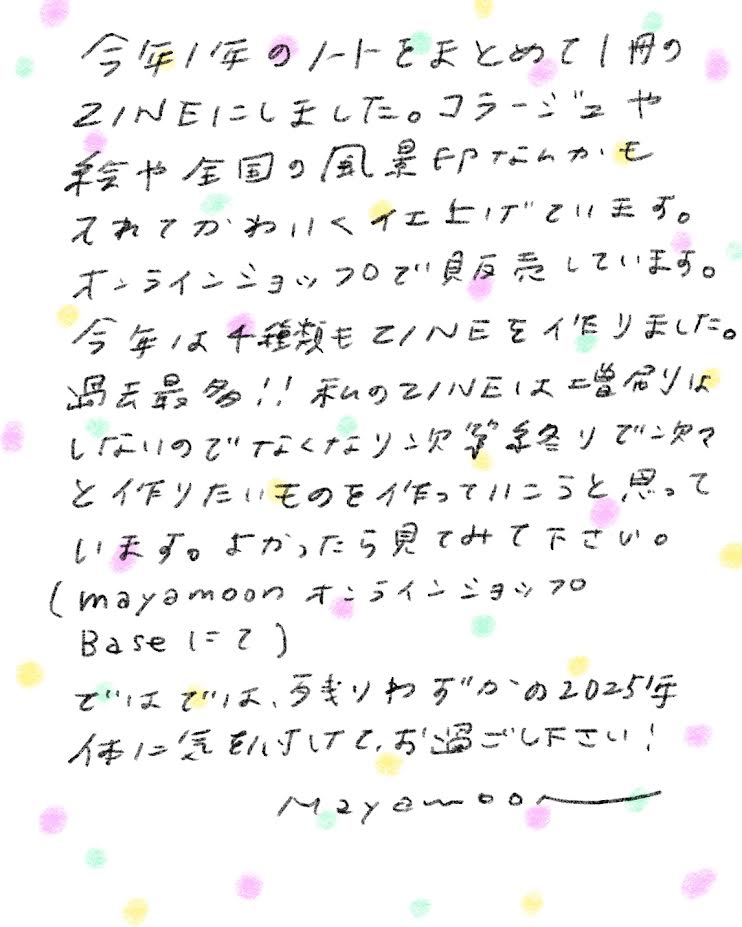 今年1年のノートをまとめて1冊の
ZINEにしました。コラージュや
絵や全国の風景印なんかも
入れてかわいく仕上げています。
オンラインショップで販売しています。
今年は4種類もZINEを作りました。
過去最多!! 私のZINEは増刷りは
しないのでなくなり次第終りで次々
と作りたいものを作っていこうと思って
います。よかったら見てみて下さい。
(mayamoonオンラインショップ
Baseにて)
ではでは、残りわずかの2025年
体に気を付けて、お過ごし下さい!
Mayamoon